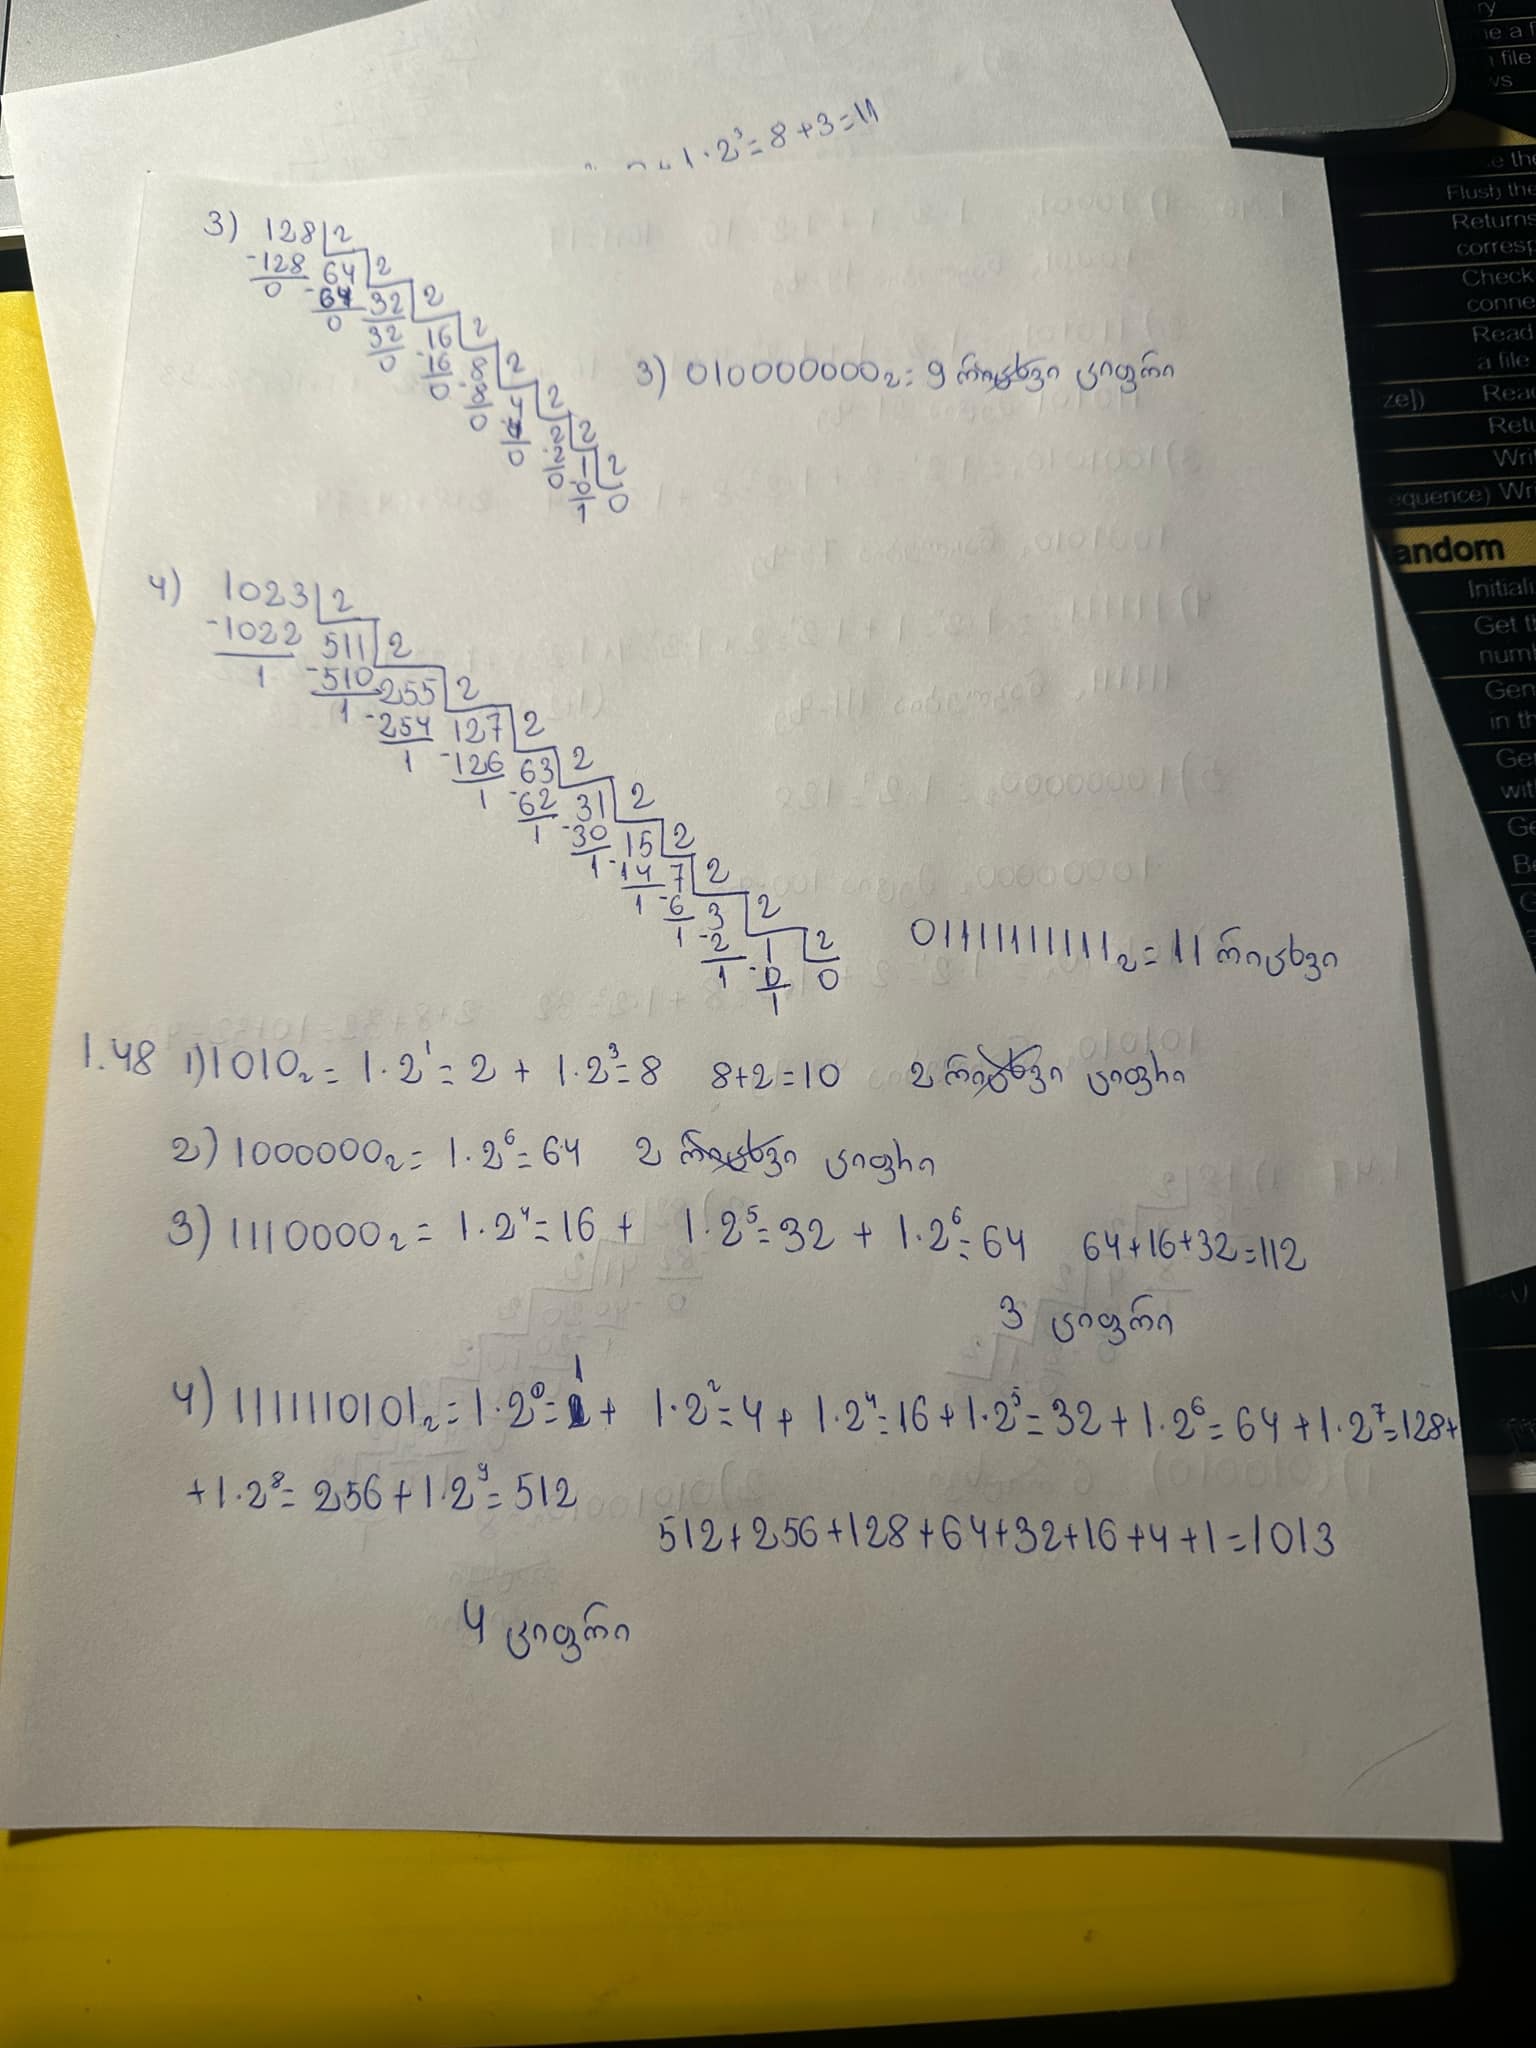 1·2³=8+3=11
3) 128|2
-128 64|2
0 -64 32|2
0 32 16|2
0 -16 8|2
0 -8 4|2
0 4 2|2
0 -2 1|2
0 -0 0
1
3) 010000000₂= 9 ციფრი
4) 1023|2
-1022 511|2
1 -510 255|2
1 -254 127|2
1 -126 63|2
1 -62 31|2
1 -30 15|2
1 -14 7|2
1 -6 3|2
1 -2 1|2
1 -0 0
1
01111111111₂= 11 რიცხვი
1.48 1)1010₂= 1·2¹=2 + 1·2³=8 8+2=10 2 რიცხვი ციფრი
2) 1000000₂= 1·2⁶=64 2 რიცხვი ციფრი
3) 1110000₂= 1·2⁴=16 + 1·2⁵=32 + 1·2⁶=64 64+16+32=112
3 ციფრი
4) 1111110101₂=1·2⁰=1+ 1·2²=4+1·2⁴=16+1·2⁵=32+1·2⁶=64+1·2⁷=128+
+1·2⁸=256+1·2⁹=512
512+256+128+64+32+16+4+1=1013
4 ციფრი
ry
file
ws
Flush the
Returns
Check
conne
Read
a file
ze]) Read
Retu
Writ
equence) Wri
andom
Initiali
Get th
numb
Gen
in th
Gen
with
Ge